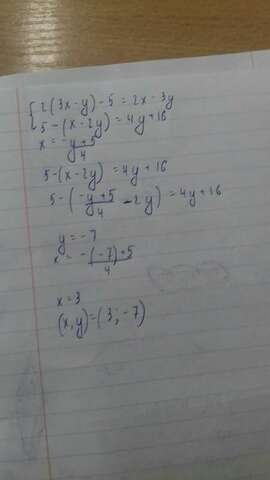 {2(3x-y)-5=2x-3y
5-(x-2y)=4y+16
x=(-y+5)/4
5-(x-2y)=4y+16
5-((-y+5)/4-2y)=4y+16
y=-7
x=(-(-7)+5)/4
x=3
(x,y)=(3;-7)